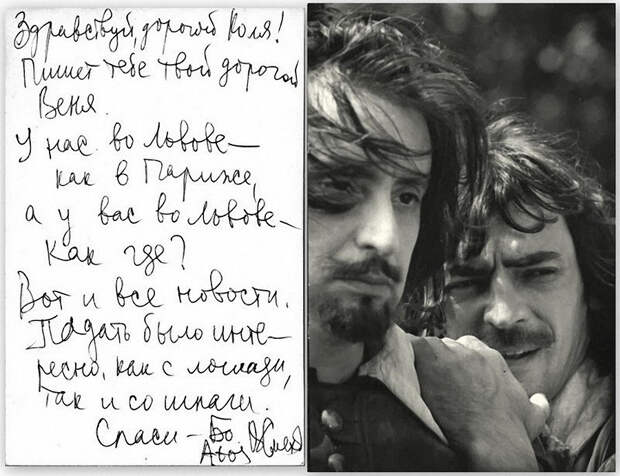 Здравствуй, дорогой Коля!
Пишет тебе твой дорогой
Веня.
У нас во Львове—
как в Париже,
а у вас во Львове—
Как где?
Вот и все новости.
Падать было инте—
ресно, как с лошади,
так и со шпаги.
Спаси— Бо
Atos